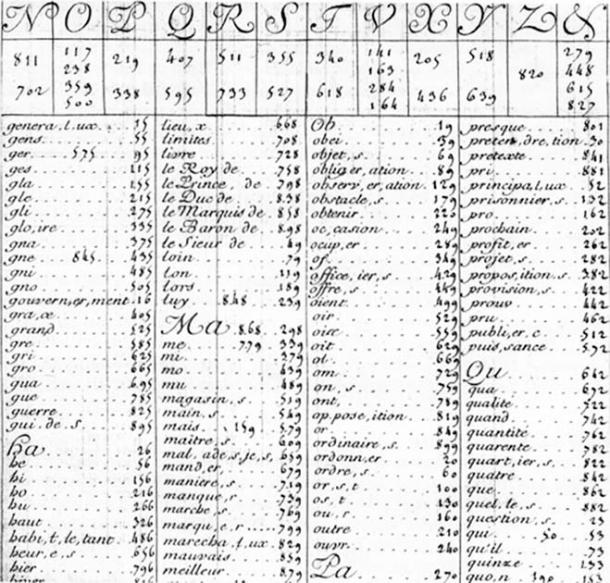 N O P Q R S T V X Y Z &
811 117 219 407 511 355 340 141 205 518 279
238 163 820 448
702 359 338 595 733 527 618 284 436 639 615
500 164 827
genera,l,ux 15
gens 55
ger 575 95
ges 115
gla 155
gle 215
gli 275
glo,ire 335
gna 375
gne 845 435
gni 485
gno 505
gouvern,er,ment 16
gra,ce 405
grand 525
gre 585
gri 625
gro 665
gua 695
gue 785
guerre 825
gui de s 895
ha 26
he 56
hi 156
ho 216
hu 266
haut 326
habit,le,tant 486
heur,e,s 656
hier 796
lieu,x 668
limites 708
livre 728
le Roy de 758
le Prince, de 798
le Duc de 838
le Marquis de 858
le Baron de 898
le Sieur de 49
loin 79
lon 119
lors 189
luy 848 239
Ma 868 298
me 779 339
mi 379
mo 439
mu 489
magasin,s 519
main,s 549
mais 159 579
maitre,s 609
mal,ade,s,je,s 659
mand,er 679
maniere,s 719
manque,r 739
marche,s 769
marqu,e,r 799
marecha,l,ux 829
mauvais 859
meilleur 879
Ob 19
obei 39
objet,s 69
oblig,er,ation 89
observ,er,ation 129
obstacle,s 179
obtenir 226
oc,casion 249
ocup,er 289
of 349
office,ier,s 429
offre,s 449
oient 499
oir 529
oise 559
oit 629
ol 669
om 729
on,s 759
ont 789
op,pose,ition 819
or 849
ordinaire,s 899
ordonn,er 20
ordre,s 60
or,s,t 100
os,t 130
ou,s 160
outre 210
ouvr 240
Pa 270
presque 801
preten,dre,tion 30
pretexte 841
pri 881
principa,l,ux 52
prisonnier,s 132
pro 162
prochain 202
profit,er 262
projet,s 282
propos,ition,s 382
provision,s 422
prouv 442
pru 462
publi,er,c 512
puis,sance 592
Qu 642
qua 692
qualité 722
quand 742
quantité 762
quarente 782
quart,ier,s 822
quatre 842
que 862
quel,le,s 882
question,s 23
qui 50 53
qu'il 73
quinze 133